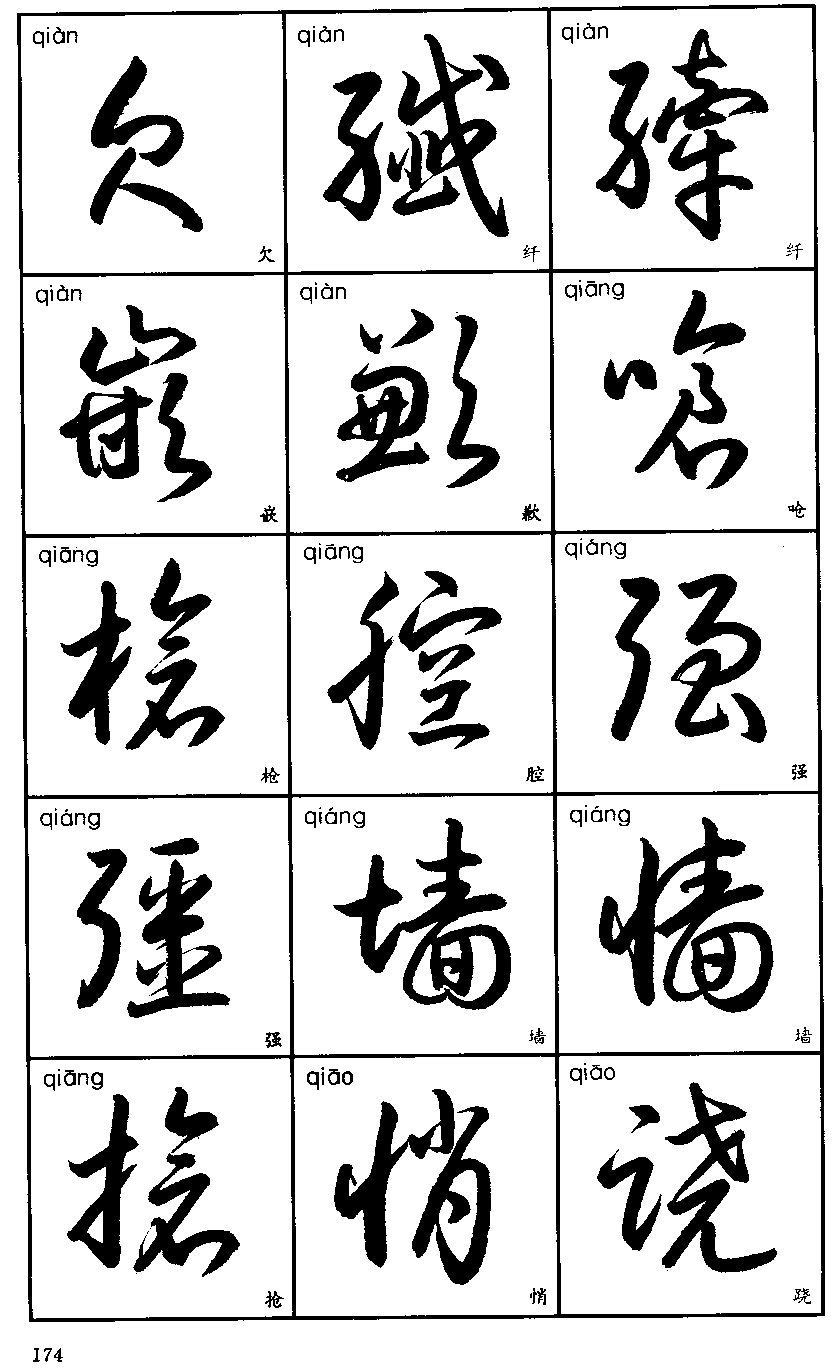 qiàn qiàn qiàn
欠 纖 縴
欠 纤 纤
qiàn qiàn qiāng
嵌 歉 嗆
嵌 歉 呛
qiāng qiāng qiáng
槍 腔 强
枪 腔 强
qiáng qiáng qiáng
彊 墻 牆
强 墙 墙
qiāng qiāo qiāo
搶 悄 跷
抢 悄 跷
174